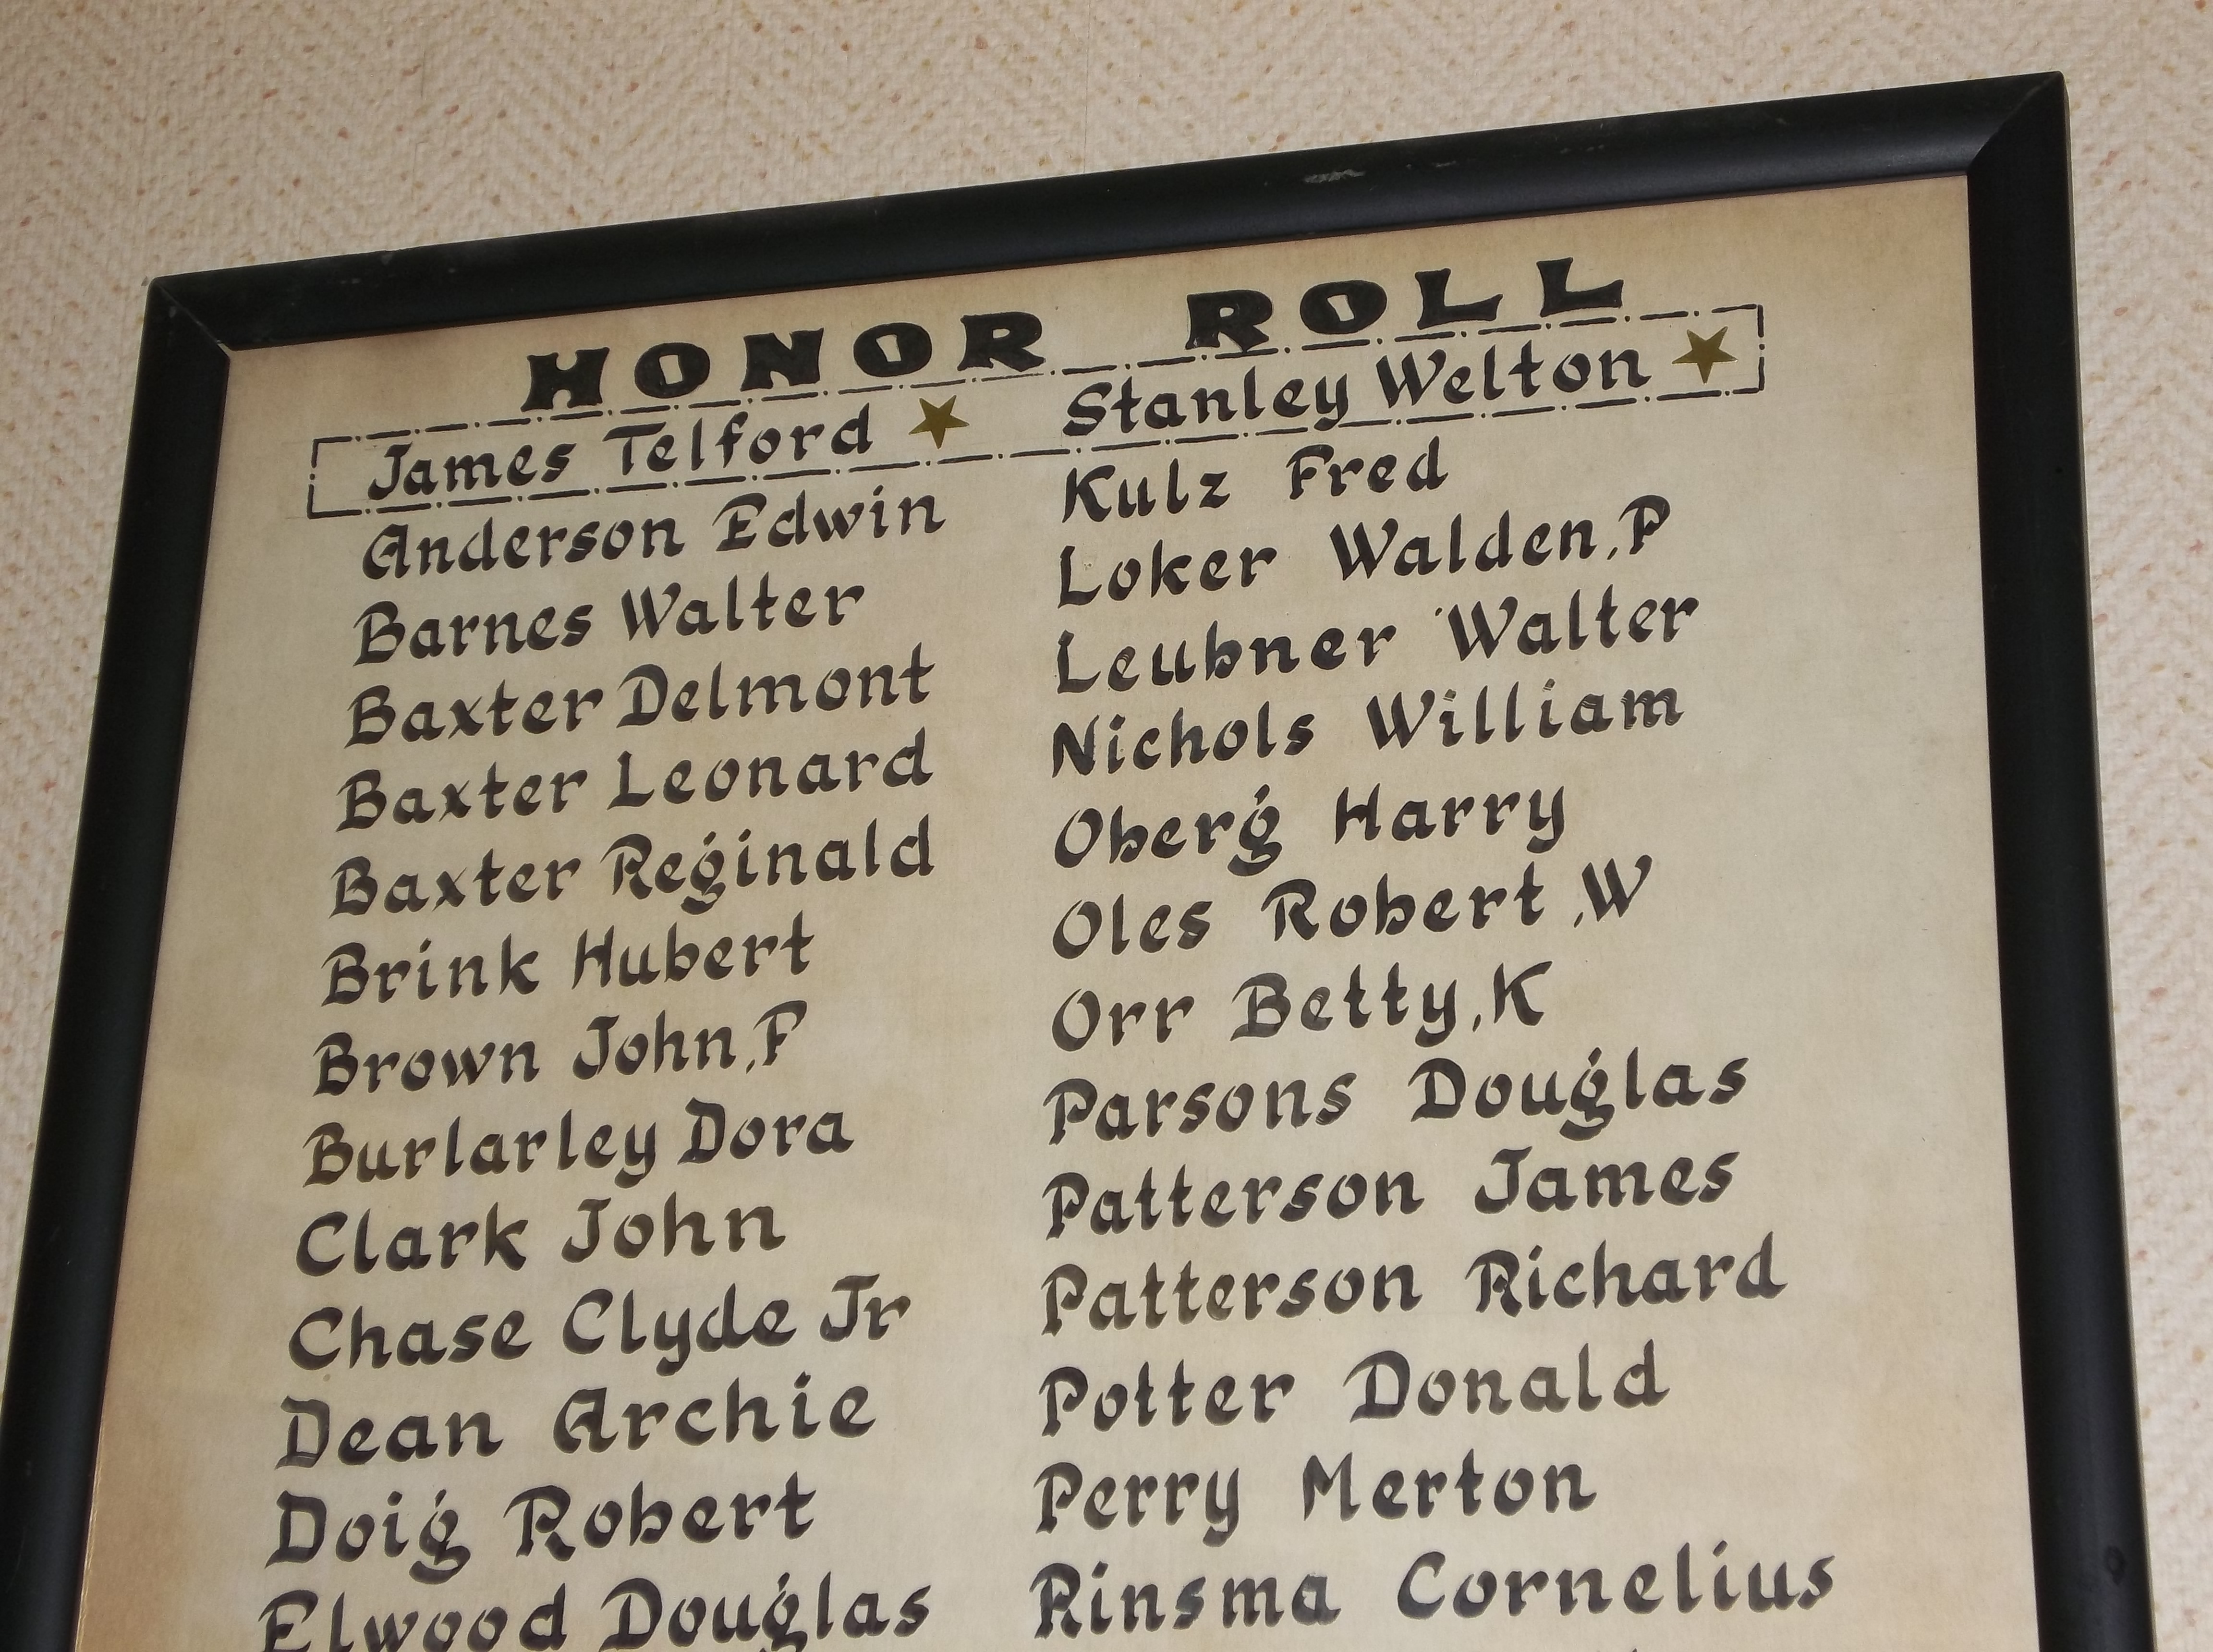 HONOR ROLL
James Telford ★ Stanley Welton ★
Anderson Edwin
Barnes Walter
Baxter Delmont
Baxter Leonard
Baxter Reginald
Brink Hubert
Brown John,P
Burlarley Dora
Clark John
Chase Clyde Jr
Dean Archie
Doig Robert
Elwood Douglas
Kulz Fred
Loker Walden,P
Leubner Walter
Nichols William
Oberg Harry
Oles Robert,W
Orr Betty,K
Parsons Douglas
Patterson James
Patterson Richard
Potter Donald
Perry Merton
Rinsma Cornelius